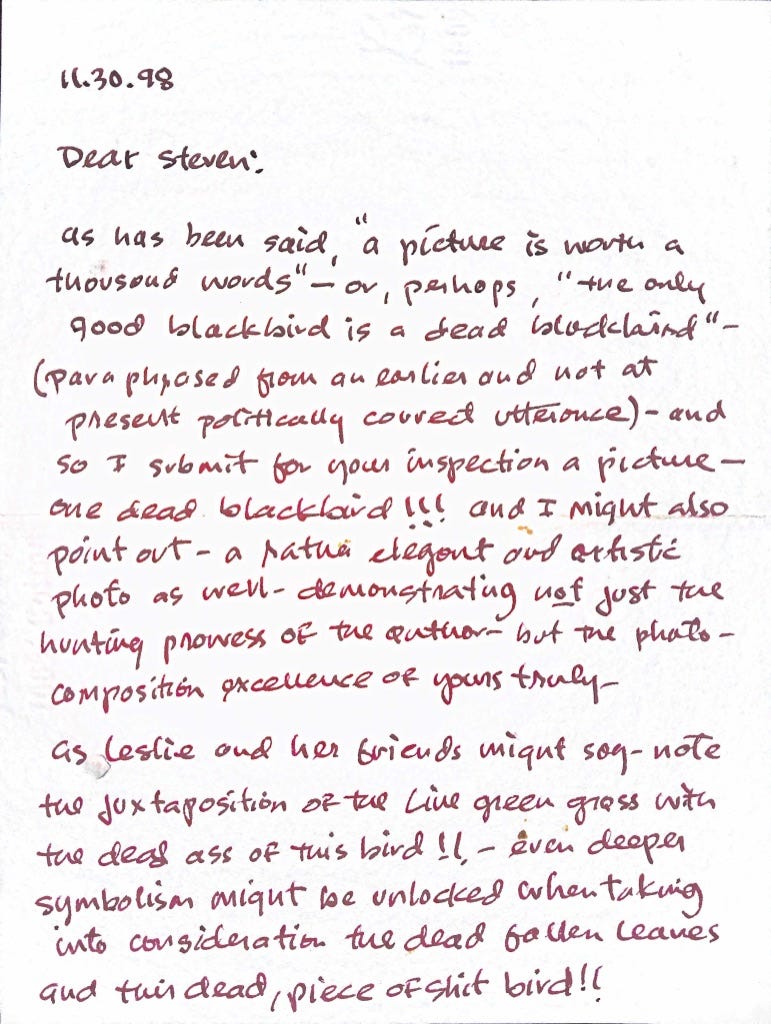 11.30.98
Dear Steven:
as has been said, "a picture is worth a
thousand words" – or, perhaps, "the only
good blackbird is a dead blackbird" –
(paraphrased from an earlier and not at
present politically correct utterance) – and
so I submit for your inspection a picture –
one dead blackbird!!! and I might also
point out – a rather elegant and artistic
photo as well – demonstrating not just the
hunting prowess of the author – but the photo –
composition excellence of yours truly –
as Leslie and her friends might say – note
the juxtaposition of the live green grass with
the dead ass of this bird!!, – even deeper
symbolism might be unlocked when taking
into consideration the dead fallen leaves
and this dead, piece of shit bird!!